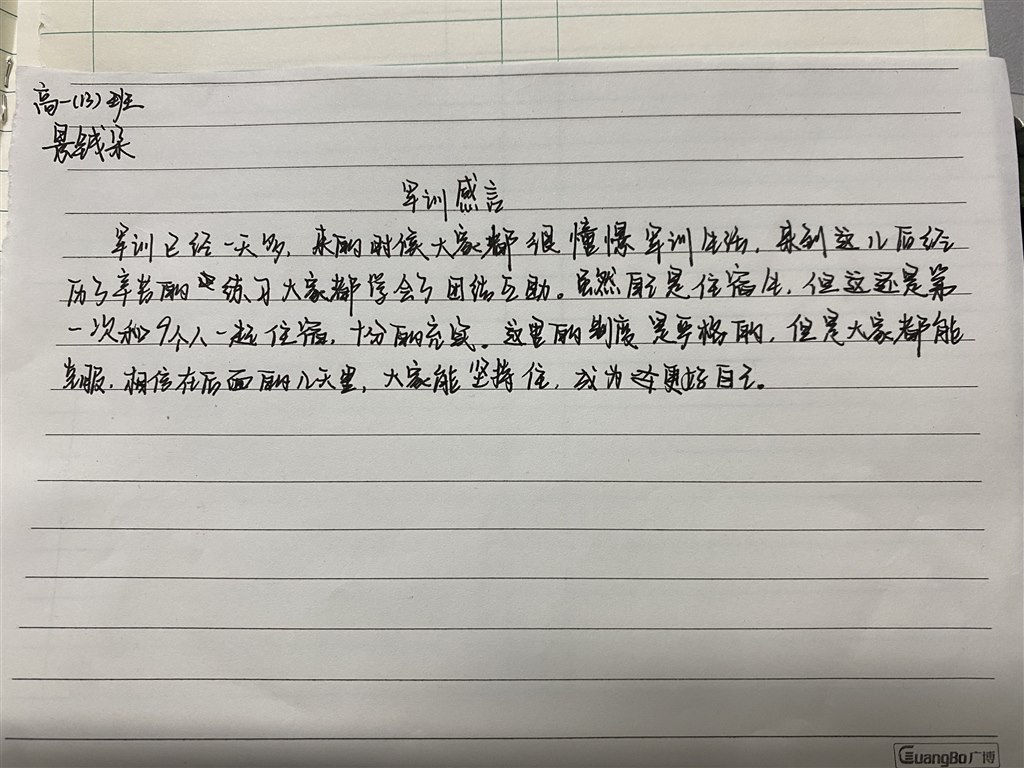 高一(13)班
景钺朵
军训感言
军训已经一天多,来的时候大家都很憧憬军训生活,来到这儿后经
历了辛苦的练习大家都学会了团结互助。虽然自己是住宿生,但这还是第
一次和9个人一起住宿,十分的充实。这里的制度是严格的,但是大家都能
克服,相信在后面的几天里,大家能坚持住,成为更好自己。
GuangBo广博